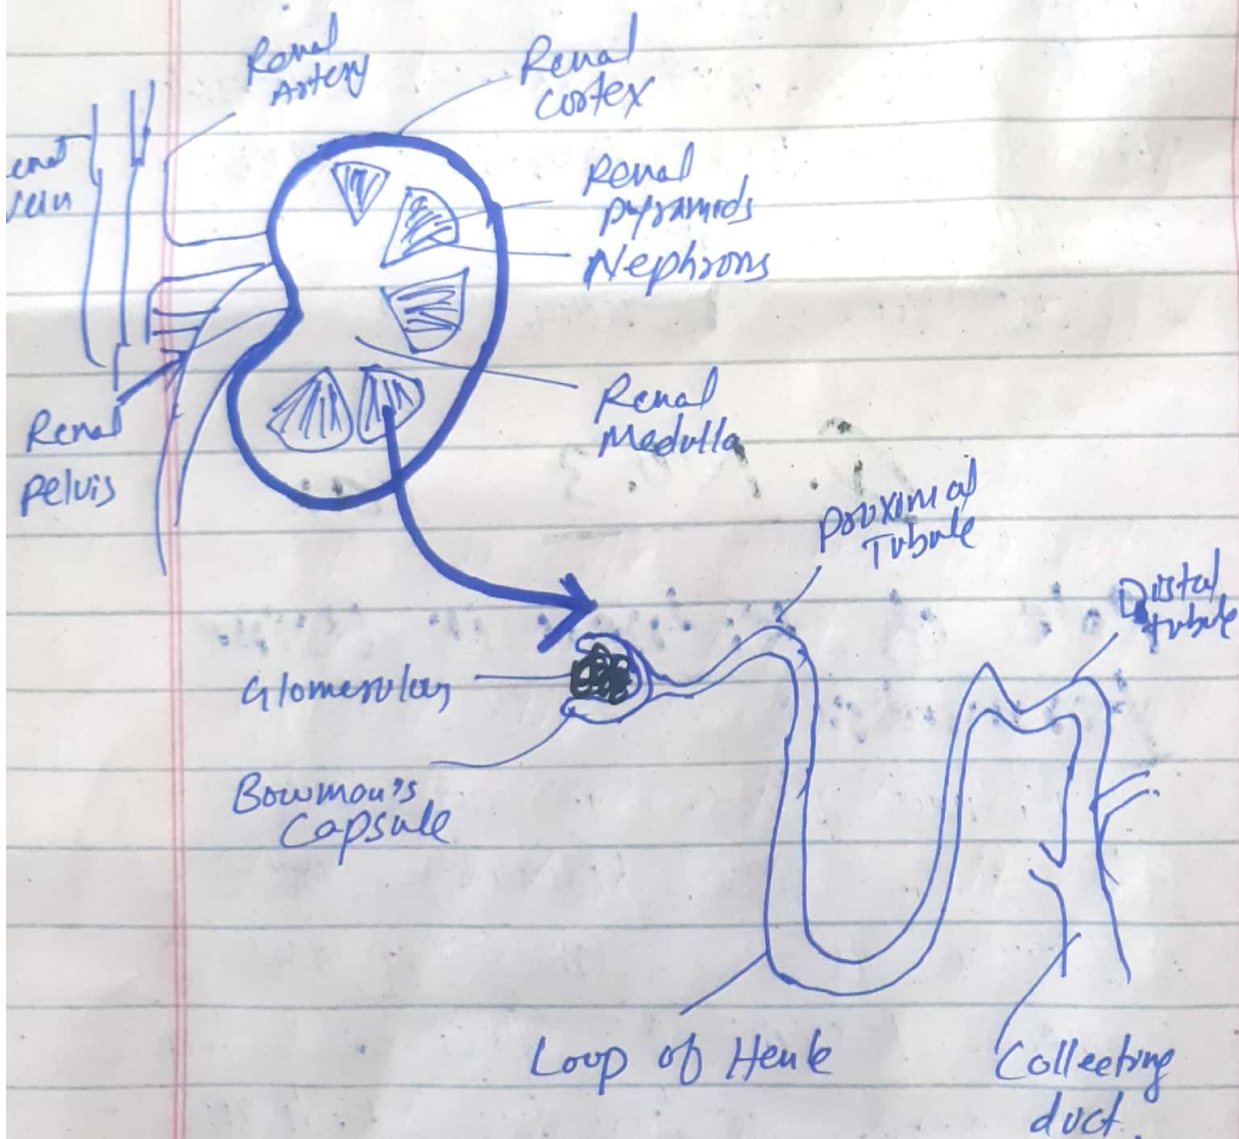 Renal
Artery
Renal
Cortex
enal
vein
Renal
pyramids
Nephrons
Renal
Medulla
Renal
pelvis
proximal
Tubule
Distal
tubule
Glomerulus
Bowman's
Capsule
Loop of Henle
Collecting
duct.